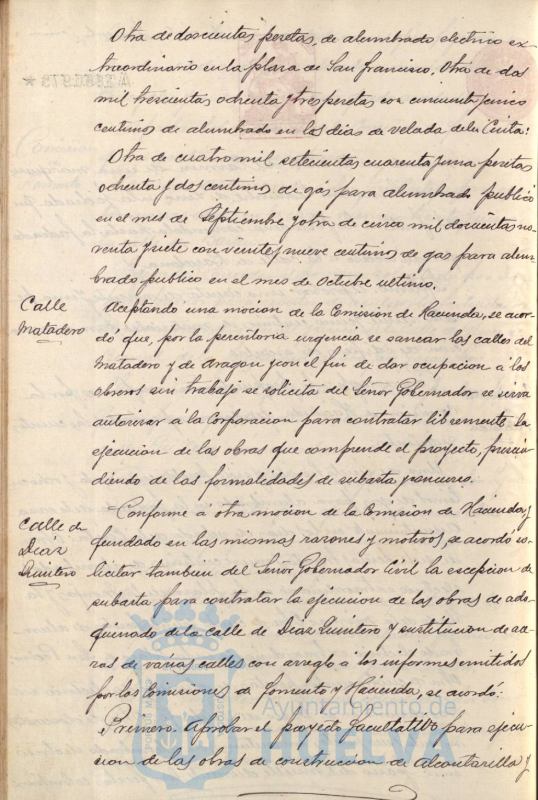 Otra de doscientas pesetas, de alumbrado electrico ex-
traordinario en la plaza de San Francisco. Otra de dos
mil trescientas ochenta y tres pesetas con cincuenta y cinco
centimos de alumbrado en los dias de velada de la Cinta:
Otra de cuatro mil setecientas cuarenta y una pesetas
ochenta y dos centimos de gas para alumbrado publico
en el mes de Septiembre y otra de cinco mil doscientas no-
venta y siete con veinte y nueve centimos de gas para alum-
brado publico en el mes de Octubre ultimo.
Calle
Matadero
Aceptando una mocion de la Comision de Hacienda, se acor-
dó que, por la perentoria urgencia se sanear las calles del
Matadero y de Aragon y con el fin de dar ocupacion á los
obreros sin trabajo se solicita del Señor Gobernador se sirva
autorizar á la Corporacion para contratar libremente la
ejecucion de las obras que comprende el proyecto, prescin-
diendo de las formalidades de subasta y concurso.
Calle de
Diaz
Quintero
Conforme á otra mocion de la Comision de Hacienda y
fundado en las mismas razones y motivos, se acordó so-
licitar tambien del Señor Gobernador Civil la escepcion de
subasta para contratar la ejecucion de las obras de ado-
quinado de la calle de Diaz Quintero y sustitucion de ace-
ras de varias calles con arreglo á los informes emitidos
por las Comisiones de Fomento y Hacienda, se acordó:
Primero. Aprobar el proyecto facultativo para ejecu-
cion de las obras de construccion de alcantarilla y
Ayuntamiento de
HUELVA